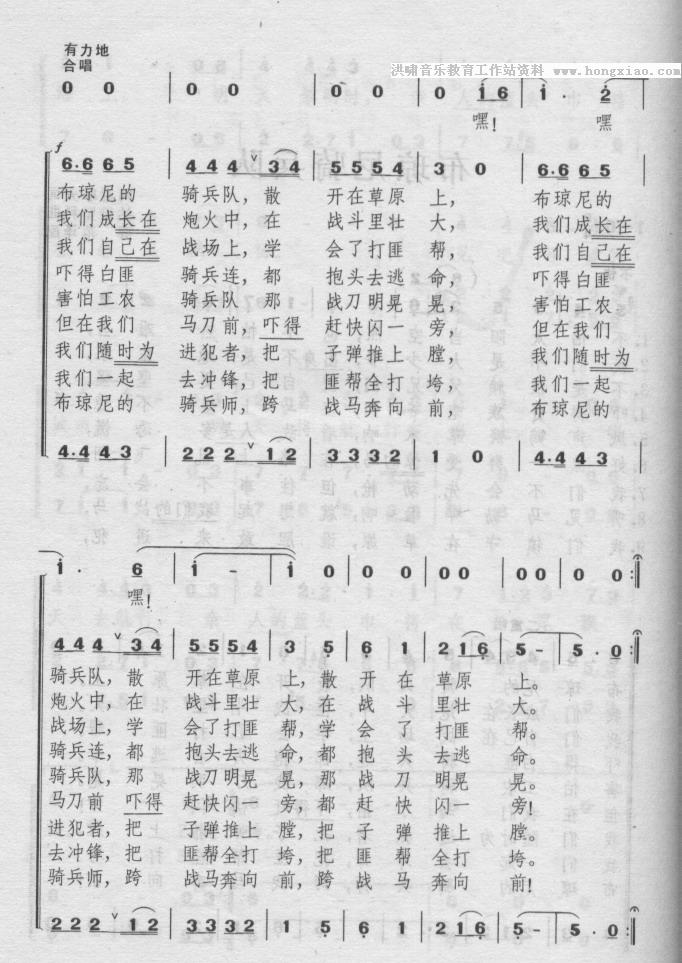 洪啸音乐教育工作站资料 www.hongxiao.com
有力地
合唱
0 0 | 0 0 | 0 0 | 0 i6 | i · 2
嘿! 嘿
f
6·6 6 5 | 4 4 4 ∨ 3 4 | 5 5 5 4 | 3 0 | 6·6 6 5
布琼尼的 骑兵队,散 开在草原 上, 布琼尼的
我们成长在 炮火中,在 战斗里壮 大, 我们成长在
我们自己在 战场上,学 会了打匪 帮, 我们自己在
吓得白匪 骑兵连,都 抱头去逃 命, 吓得白匪
害怕工农 骑兵队,那 战刀明晃 晃, 害怕工农
但在我们 马刀前,吓得 赶快闪一 旁, 但在我们
我们随时为 进犯者,把 子弹推上 膛, 我们随时为
我们一起 去冲锋,把 匪帮全打 垮, 我们一起
布琼尼的 骑兵师,跨 战马奔向 前, 布琼尼的
4·4 4 3 | 2 2 2 ∨ 1 2 | 3 3 3 2 | 1 0 | 4·4 4 3
i · 6 | i - | i 0 | 0 0 | 0 0 | 00 | 00 | 0 0
嘿!
4 4 4 ∨ 3 4 | 5 5 5 4 | 3 5 | 6 1 | 2 16 | 5 - | 5 0
骑兵队,散 开在草原 上,散 开 在 草原 上。
炮火中,在 战斗里壮 大,在 战 斗 里壮 大。
战场上,学 会了打匪 帮,学 会 了 打匪 帮。
骑兵连,都 抱头去逃 命,都 抱 头 去逃 命。
骑兵队,那 战刀明晃 晃,那 战 刀 明晃 晃。
马刀前 吓得 赶快闪一 旁,都 赶 快 闪一 旁!
进犯者,把 子弹推上 膛,把 子 弹 推上 膛。
去冲锋,把 匪帮全打 垮,把 匪 帮 全打 垮。
骑兵师,跨 战马奔向 前,跨 战 马 奔向 前!
2 2 2 ∨ 1 2 | 3 3 3 2 | 1 5 | 6 1 | 2 16 | 5 - | 5 0